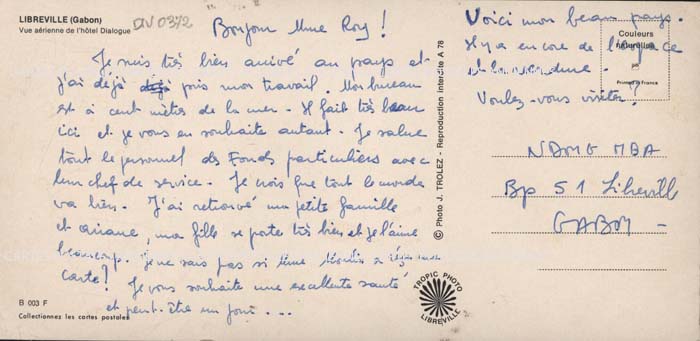 LIBREVILLE (Gabon)
Vue aérienne de l'hôtel Dialogue
DIV 0372
Bonjour Mme Roy !
Je suis très bien arrivé au pays et
j'ai déjà pris mon travail. Mon bureau
est à cent mètres de la mer. Il fait très beau
ici et je vous en souhaite autant. Je salue
tout le personnel des Fonds particuliers avec
leur chef de service. Je crois que tout le monde
va bien. J'ai retrouvé ma petite famille
et Oriane, ma fille se porte très bien et je l'aime
beaucoup. Je ne sais pas si Mme a reçu
carte? Je vous souhaite une excellente santé
et peut-être un jour. ...
B 003 F
Collectionnez les cartes postales
© Photo J. TROLEZ - Reproduction interdite A 78
TROPIC PHOTO
LIBREVILLE
Voici mon beau pays.
Il y a encore de l'espace
et la verdure.
Voulez-vous visiter?
Couleurs
naturelles
Printed in France
NDONG MBA
Bp 51 Libreville
GABON